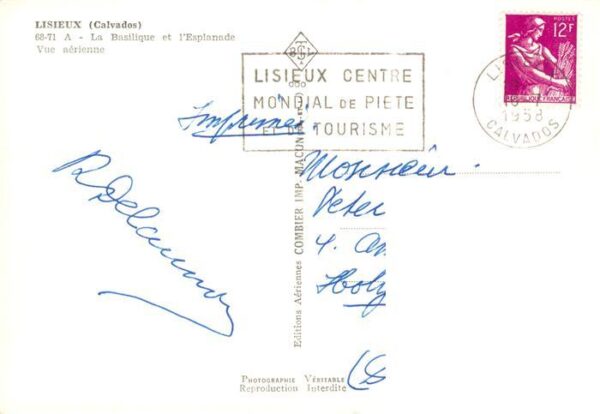 LISIEUX (Calvados)
68-71 A - La Basilique et l'Esplanade
Vue aérienne
LISIEUX CENTRE
MONDIAL DE PIETE
ET DE TOURISME
POSTES
12F
REPUBLIQUE FRANÇAISE
1958
CALVADOS
Imprimé
Monsieur
Peter
4.
Holy
R Delaunay
Editions Aériennes COMBIER IMP. MACON
PHOTOGRAPHIE VÉRITABLE
Reproduction Interdite